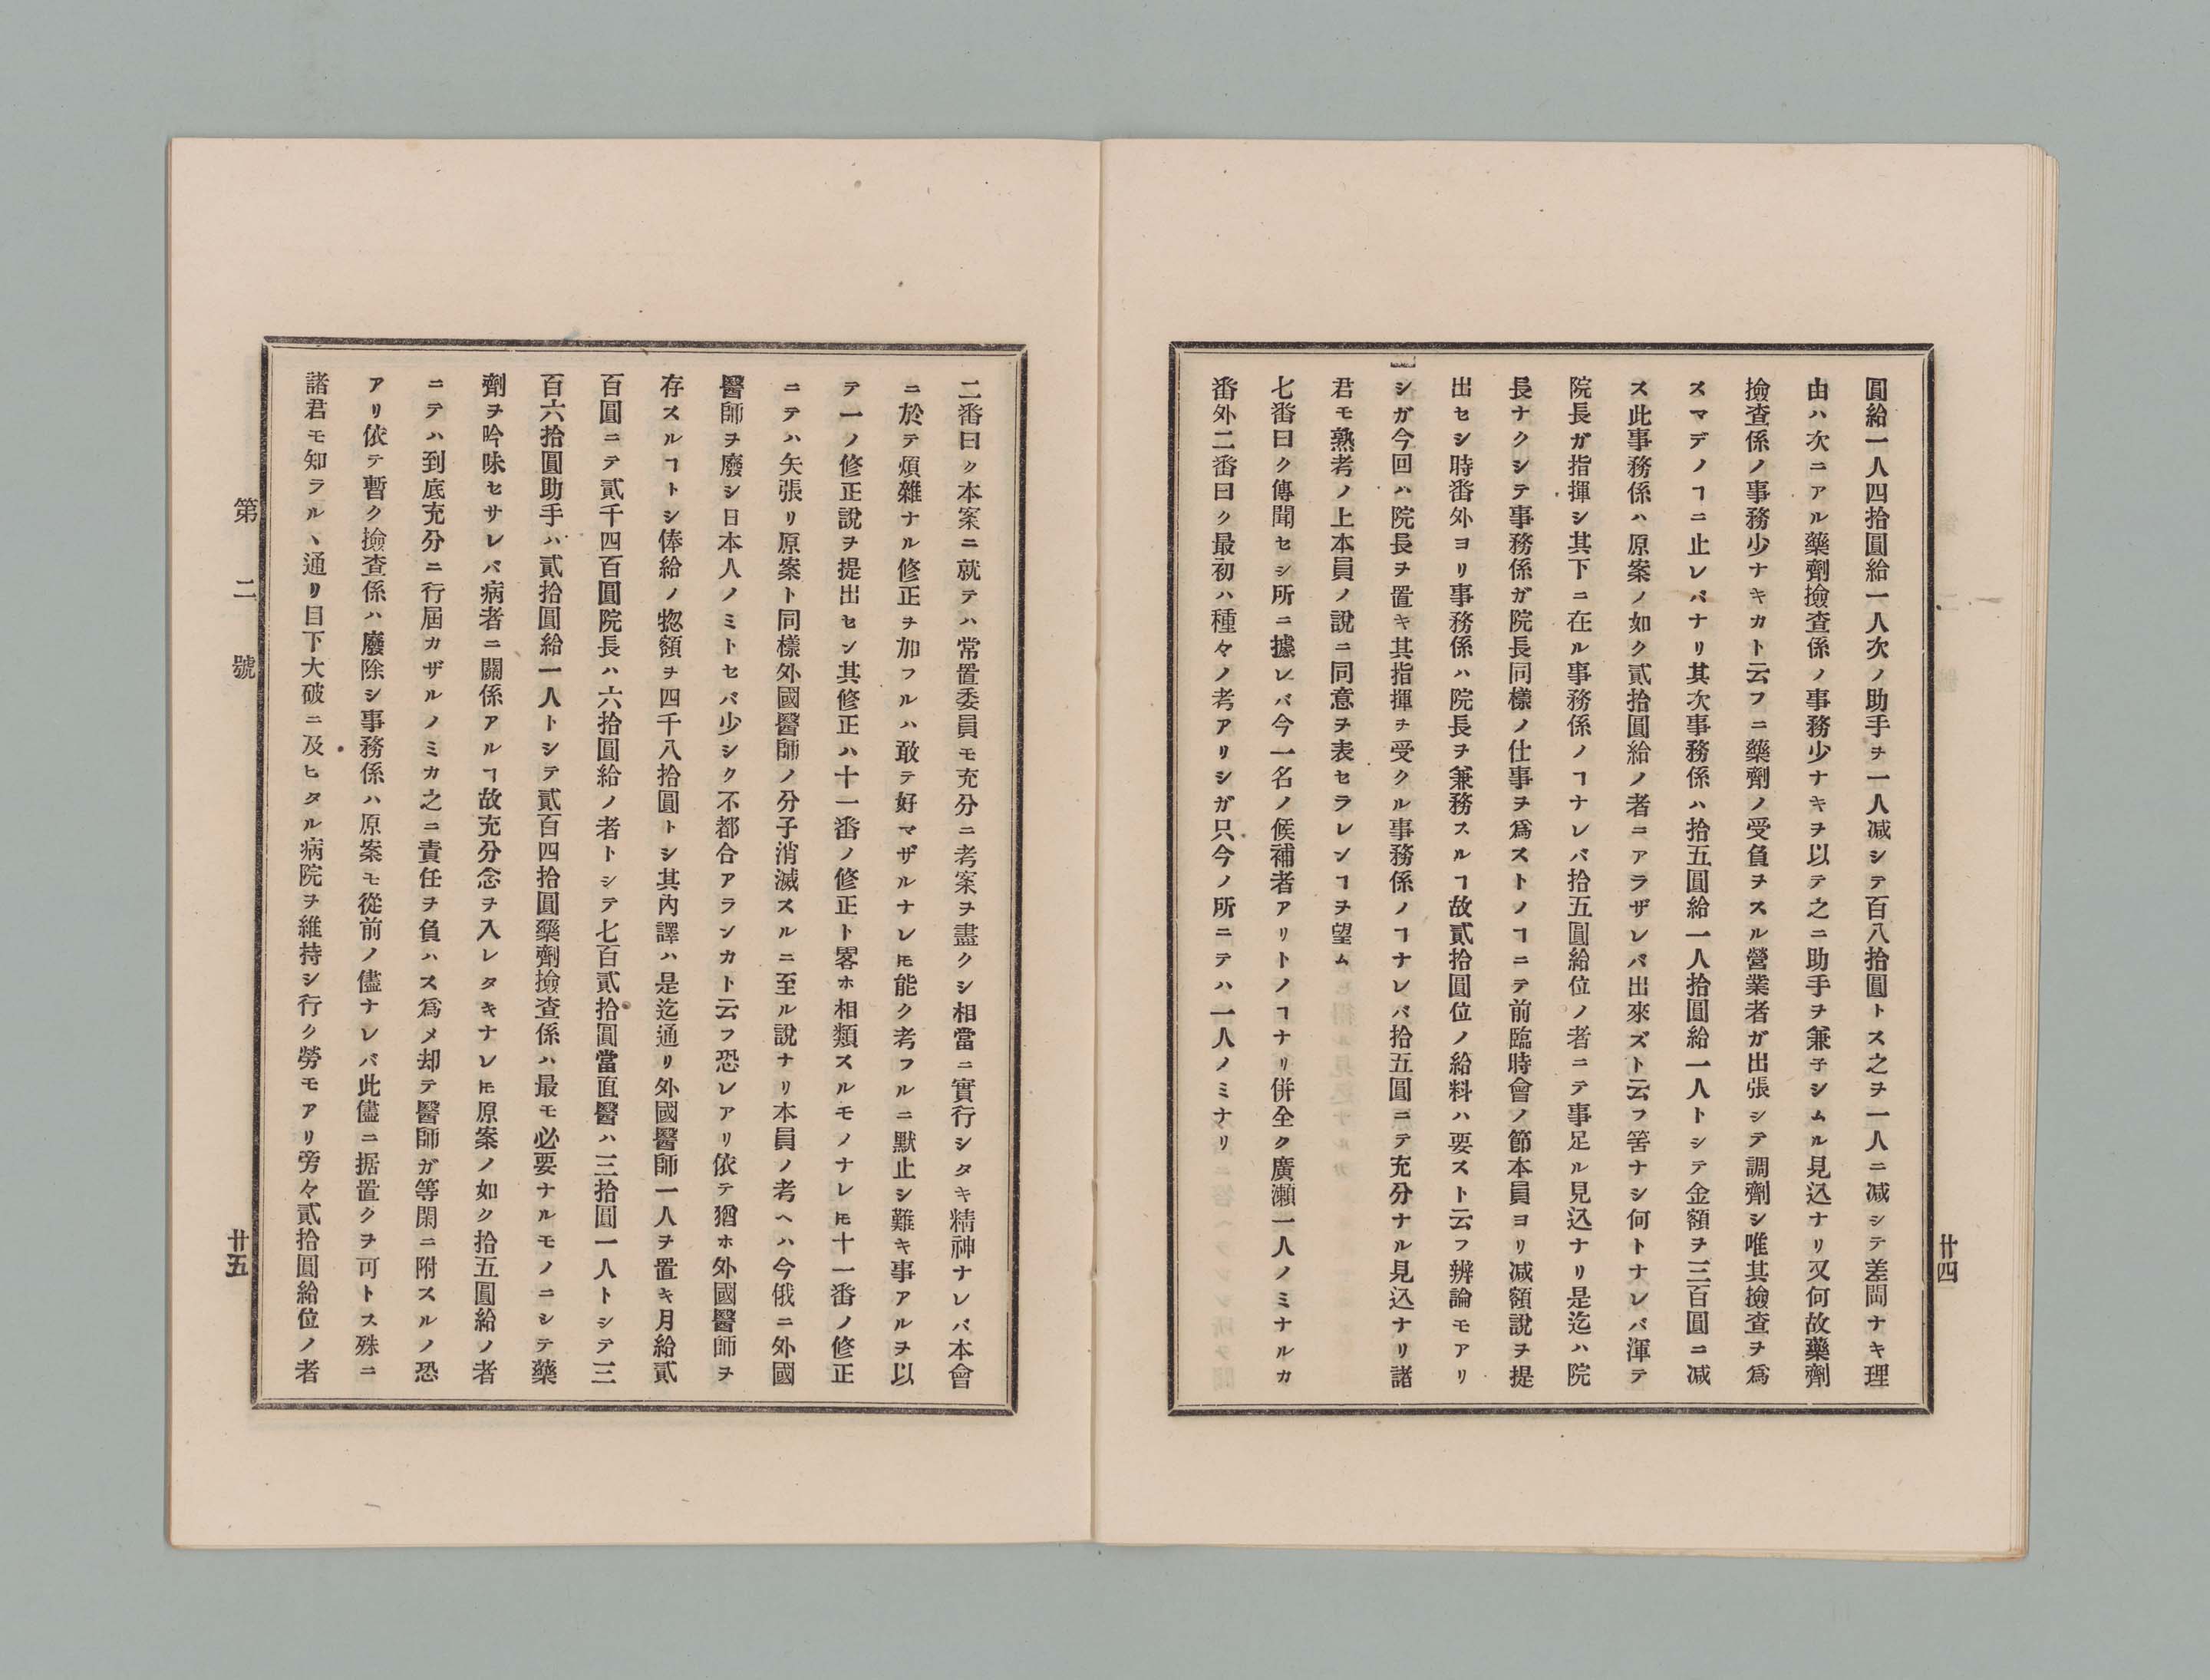 圓給一人四拾圓給一人次ノ助手ヲ一人减シテ百八拾圓トス之ヲ一人ニ减シテ差閊ナキ理
由ハ次ニアル藥劑撿査係ノ事務少ナキヲ以テ之ニ助手ヲ兼子シムル見込ナリ又何故藥劑
撿査係ノ事務少ナキカト云フニ藥劑ノ受負ヲスル營業者ガ出張シテ調劑シ唯其撿査ヲ爲
スマデノヿニ止レバナリ其次事務係ハ拾五圓給一人拾圓給一人トシテ金額ヲ三百圓ニ减
ス此事務係ハ原案ノ如ク貳拾圓給ノ者ニアラザレバ出來ズト云フ筈ナシ何トナレバ渾テ
院長ガ指揮シ其下ニ在ル事務係ノヿナレバ拾五圓給位ノ者ニテ事足ル見込ナリ是迄ハ院
長ナクシテ事務係ガ院長同樣ノ仕事ヲ爲ストノヿニテ前臨時會ノ節本員ヨリ减額說ヲ提
出セシ時番外ヨリ事務係ハ院長ヲ兼務スルヿ故貳拾圓位ノ給料ハ要スト云フ辨論モアリ
シガ今回ハ院長ヲ置キ其指揮ヲ受クル事務係ノヿナレバ拾五圓ニテ充分ナル見込ナリ諸
君モ熟考ノ上本員ノ說ニ同意ヲ表セラレンヿヲ望ム
七番曰ク傳聞セシ所ニ據レバ今一名ノ候補者アリトノヿナリ併全ク廣瀨一人ノミナルカ
番外二番曰ク最初ハ種々ノ考アリシガ只今ノ所ニテハ一人ノミナリ
廿四
二番曰ク本案ニ就テハ常置委員モ充分ニ考案ヲ盡クシ相當ニ實行シタキ精神ナレバ本會
ニ於テ煩雜ナル修正ヲ加フルハ敢テ好マザルナレ𪜈能ク考フルニ默止シ難キ事アルヲ以
テ一ノ修正說ヲ提出セン其修正ハ十一番ノ修正ト畧ホ相類スルモノナレ𪜈十一番ノ修正
ニテハ矢張リ原案ト同樣外國醫師ノ分子消滅スルニ至ル說ナリ本員ノ考ヘハ今俄ニ外國
醫師ヲ廢シ日本人ノミトセバ少シク不都合アランカト云フ恐レアリ依テ猶ホ外國醫師ヲ
存スルヿトシ俸給ノ惣額ヲ四千八拾圓トシ其內譯ハ是迄通リ外國醫師一人ヲ置キ月給貳
百圓ニテ貳千四百圓院長ハ六拾圓給ノ者トシテ七百貳拾圓當直醫ハ三拾圓一人トシテ三
百六拾圓助手ハ貳拾圓給一人トシテ貳百四拾圓藥劑撿査係ハ最モ必要ナルモノニシテ藥
劑ヲ吟味セサレバ病者ニ關係アルヿ故充分念ヲ入レタキナレ𪜈原案ノ如ク拾五圓給ノ者
ニテハ到底充分ニ行屆カザルノミカ之ニ責任ヲ負ハス爲メ却テ醫師ガ等閑ニ附スルノ恐
アリ依テ暫ク撿查係ハ廢除シ事務係ハ原案モ從前ノ儘ナレバ此儘ニ据置クヲ可トス殊ニ
諸君モ知ラルヽ通リ目下大破ニ及ヒタル病院ヲ維持シ行ク勞モアリ旁々貳拾圓給位ノ者
第二號
廿五